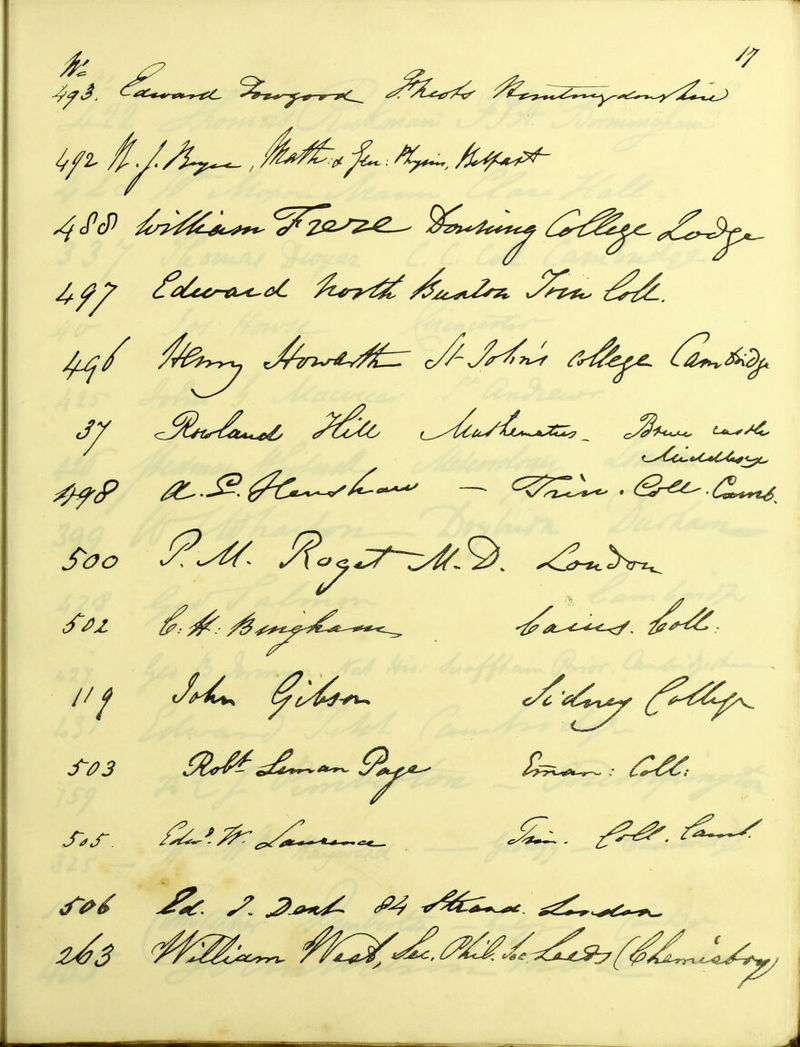 17
No
493. Edward Towgood St. Neots Huntingdonshire
492 R. J. Bryce, Math: & Gen: Physics, Belfast
488 William Frere Downing College Lodge
497 Edward North Buxton Trin Coll.
496 Henry Howarth St John's college Cambridge
37 Rowland Hill Mathematics - Bruce castle
Middlesex
498 A. L. Henshaw — Trin. Coll. Camb.
500 P. M. Roget M.D. London
502 C: H: Bingham Caius. Coll:
119 John Gibson Sidney College
503 Robt Leman Page Eman: Coll:
505. Edwd. W. Laurence Trin. Coll. Camb.
506 Ed. J. Dent 84 Strand. London
263 William West, Sec. Phil. Soc Leeds (Chemistry)